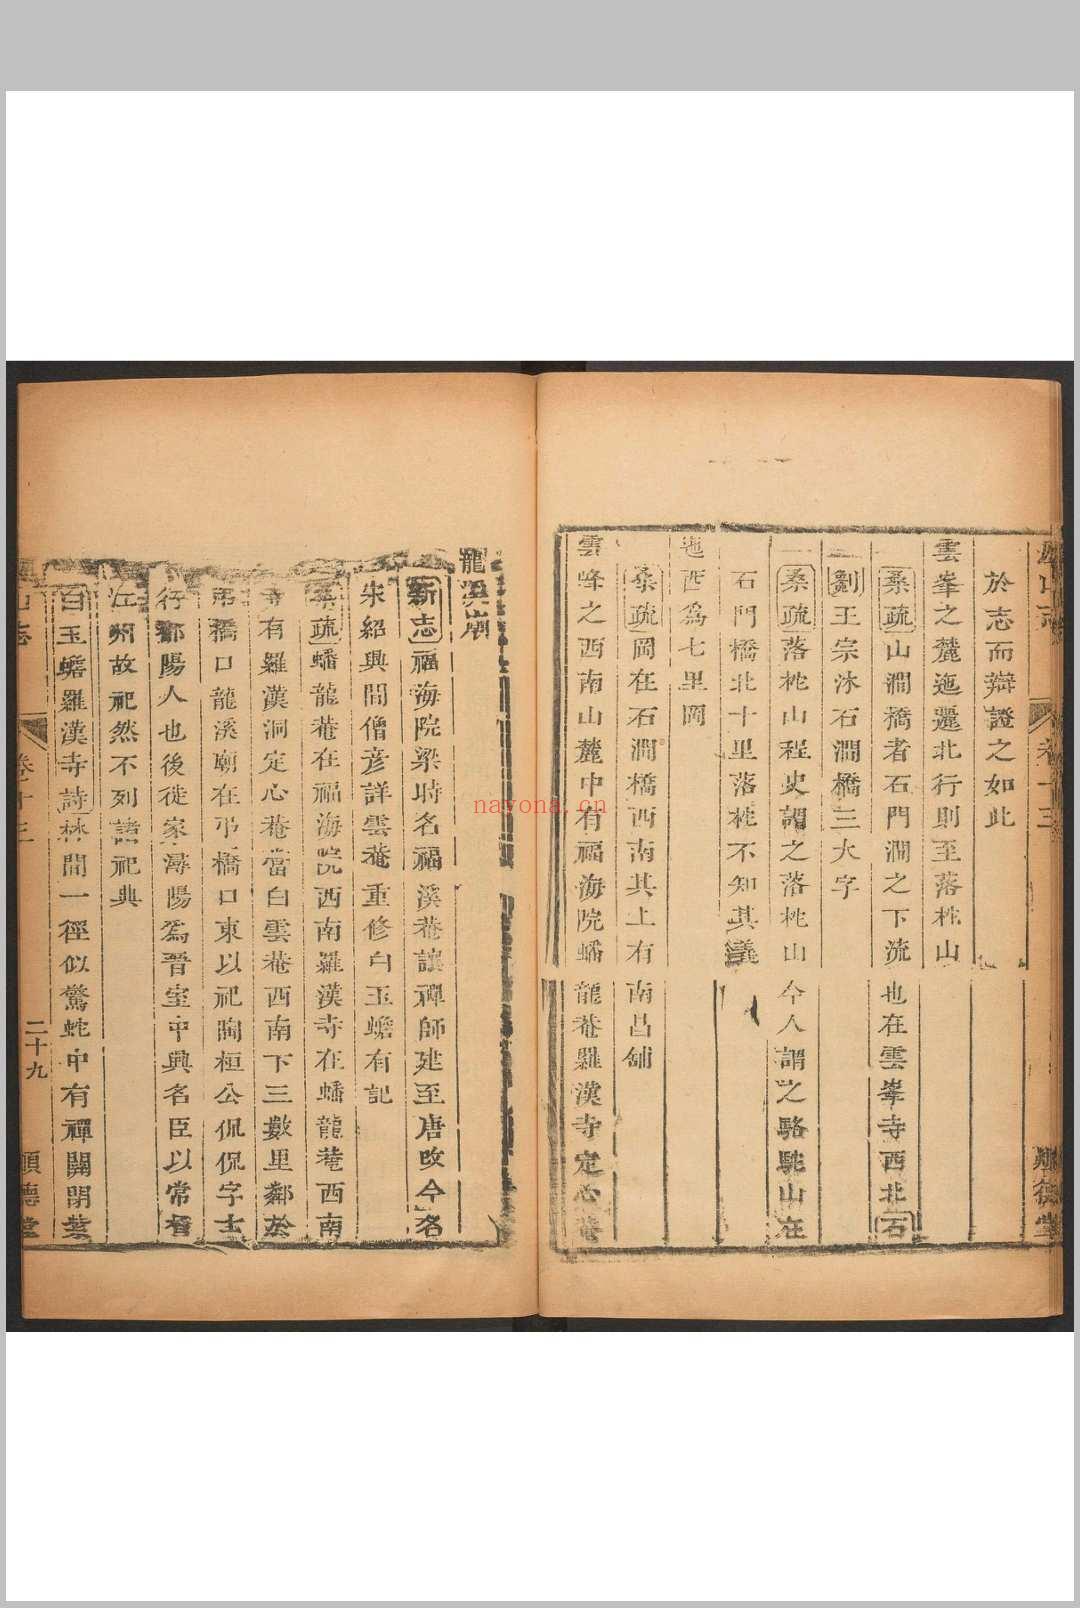 廬山志
卷十三
順德堂
於志而辯證之如此
雲峯之麓迤邐北行則至落桃山
桑疏山澗橋者石門澗之下流也在雲峯寺西北石
劉王宗沐石澗橋三大字
桑疏落桃山程史謂之落桃山今人謂之駱駝山在
石門橋北十里落桃不知其義
迤西爲七里岡
桑疏岡在石澗橋西南其上有南昌舖
雲峰之西南山麓中有福海院蟠龍菴羅漢寺定心菴
龍溪廟
新志福海院梁時名福溪菴讓禪師建至唐改今名
朱紹興間僧彦詳雲菴重修白玉蟾有記
桑疏蟠龍菴在福海院西南羅漢寺在蟠龍菴西南
寺有羅漢洞定心菴當白雲菴西南下三數里鄰於
弔橋口龍溪廟在弔橋口東以祀陶桓公侃侃字士
行鄱陽人也後徙家潯陽爲晉室中興名臣以常督
江州故祀然不列諸祀典
白玉蟾羅漢寺詩林間一徑似驚蛇中有禪關閉紫
山志
卷十三
二十九
順德堂
nayona.cn